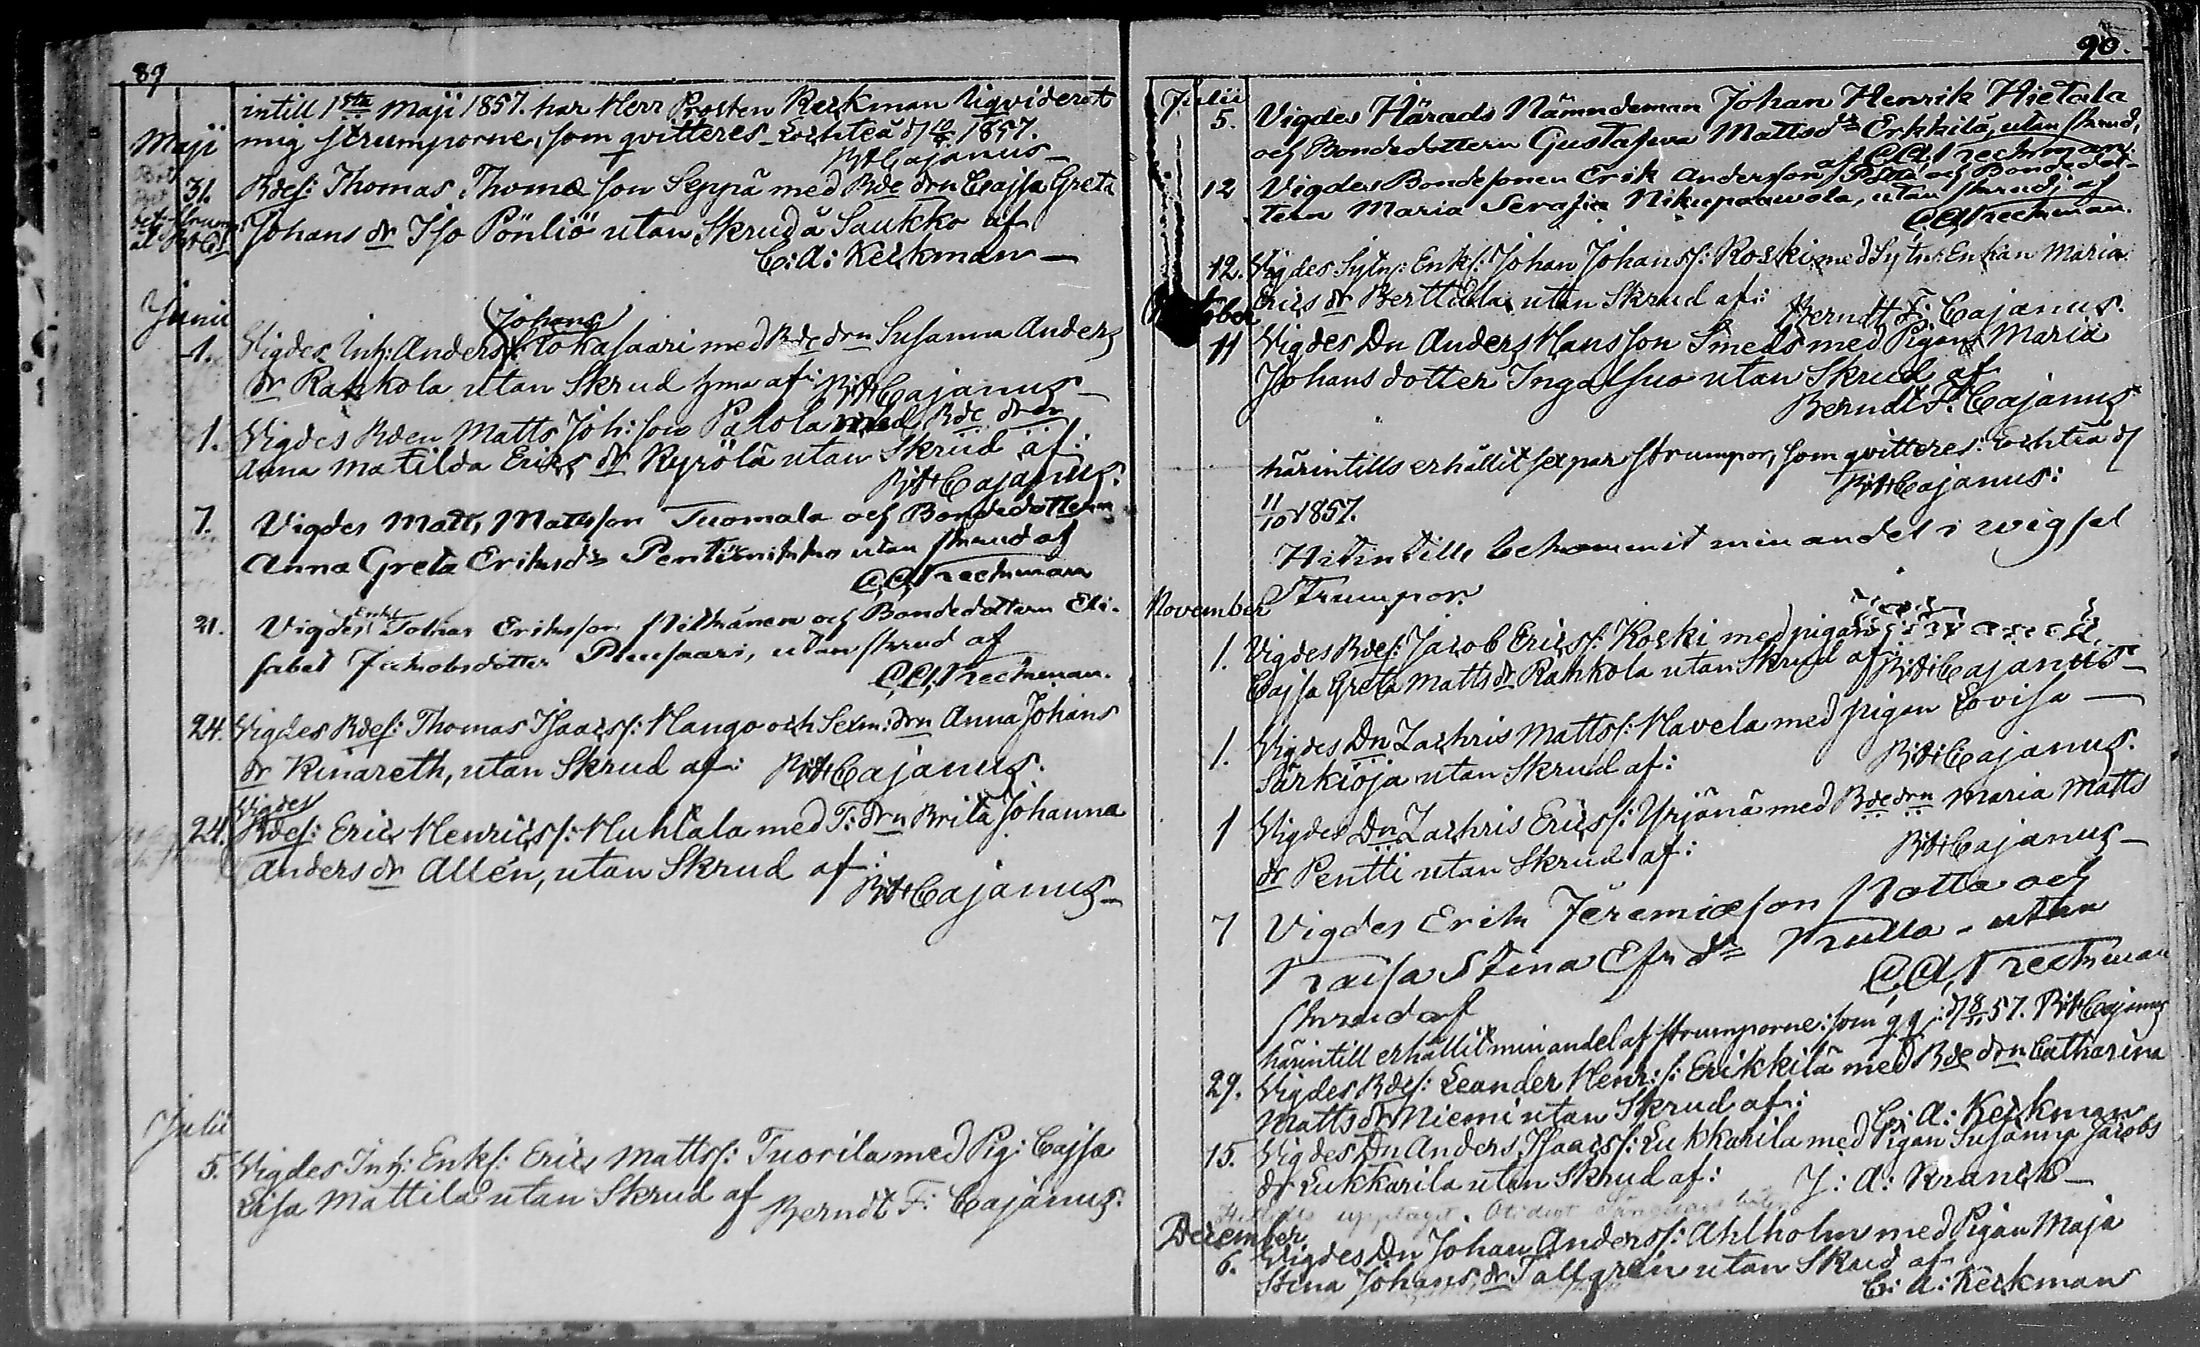 89
intill 1sta Maji 1857. har Herr Prosten Keckman liqviderat
Maji mig strumporne, som qvitteres Lochteå d 1857.
B:F:Cajanus
31. Bdes: Thomas Thomæ son Seppä med Bde drn Cajsa Greta
Johans dr Iso Pönliö utan Skrud å Saukko af
C: A: Keckman
Junii
Johans
1. Vigdes Inh: Anders s: Lokasaari med Bde drn Susanna Anders
dr Rahkola utan Skrud hma af: B:F:Cajanus
1. Vigdes Bden Matts Joh: son Palola med Bde drn
Anna Matilda Eriks dr Kyrölä utan Skrud af:
B:F:Cajanus:
7. Vigdes Matts Mattsson Tuomala och Bondedottern
Anna Greta Eriksdr utan skrud af
C.A. Keckman
21. Vigdes Enkl Tobias Eriksson och Bondedottern Eli-
sabet Jakobsdotter Pensaari, utan skrud af
C.A. Keckman.
24. Vigdes Bdes: Thomas Isaacs s: Mango och Sexm: drn Anna Johans
dr Kinareth, utan Skrud af: B:F:Cajanus:
Vigdes
24. Bdes: Eric Henrics s: Huhtala med T: drn Brita Johanna
Anders dr Allén, utan Skrud af:
B:F:Cajanus
Julii
5. Vigdes Inh: Enks: Eric Matts s: Tuorila med Pig: Cajsa
Lisa Mattila utan Skrud af Berndt F: Cajanus:
90.
Julii
5. Vigdes Härads Nämndeman Johan Henrik Hietala
och Bondedottern Gustafwa Mattsdr Erkkilä, utan skrud,
af C.A. Keckman.
12 Vigdes Bondesonen Erik Andersson Potti och Bondedot-
tern Maria Serafia Nikupaawola, utan skrud, af
C.A. Keckman.
12. Vigdes Sytn: Enks: Johan Johans s: Koski med Sytn: Enkan Maria
Erics dr Berttula utan Skrud af: Berndt F: Cajanus.
October
11 Vigdes Dn Anders Hansson Smeds med Pigan Maria
Johans dotter Ingalsuo utan Skrud af
Berndt F: Cajanus
härintills erhållit sex par strumpor, som qvitteres: Lochteå d
11/10 1857. B:F:Cajanus:
Hitintills bekommit min andel i wigsel
Strumpor.
November
1. Vigdes Bdes: Jacob Erics s: Koski med pigan
Cajsa Greta Matts dr Rahkola utan Skrud af: B:F:Cajanus
1. Vigdes Dn Zachris Matts s: Havela med pigan Lovisa
Särkioja utan Skrud af: B:F:Cajanus.
1 Vigdes Dn Zachris Erics s: Yrjänä med Bde drn Maria Matts
dr Pentti utan Skrud af: B:F:Cajanus
7 Vigdes Erik Jeremiæson Notta och
Kaisa Stina utan
C.A. Keckman
skrud af
härintill erhållit min andel af strumporne: som qq: d 8/11 57. B:F:Cajanus
29. Vigdes Bdes: Leander Henr: s: Erikkilä med Bde drn Catharina
Matts dr Niemi utan Skrud af: C: A: Keckman
15. Vigdes Dn Anders Isaacs s: Lukkarila med Pigan Susanna Jacobs
dr Lukkarila utan Skrud af: J: A: Kranck
December
6. Vigdes Dn Johan Anders s: Ahlholm med Pigan Maja
Stina Johans dr Tallgrén utan Skrud af
C: A: Keckman